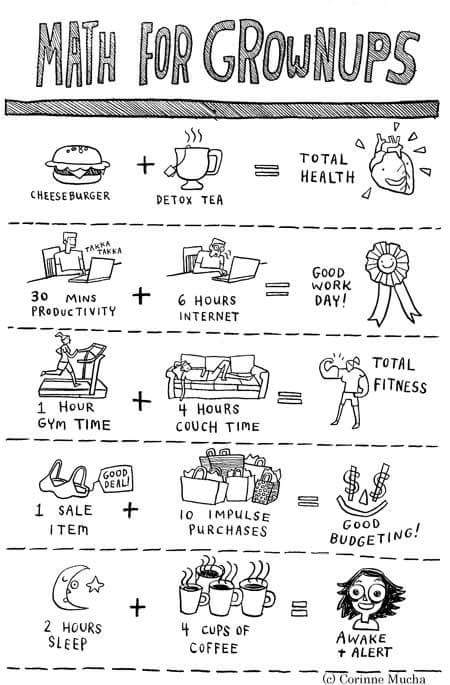 MATH FOR GROWNUPS
CHEESEBURGER
+
DETOX TEA
=
TOTAL
HEALTH
TAKKA
TAKKA
30 MINS
PRODUCTIVITY
+
6 HOURS
INTERNET
=
GOOD
WORK
DAY!
1 HOUR
GYM TIME
+
4 HOURS
COUCH TIME
=
TOTAL
FITNESS
GOOD
DEAL!
1 SALE
ITEM
+
10 IMPULSE
PURCHASES
=
$ $
GOOD
BUDGETING!
2 HOURS
SLEEP
+
4 CUPS OF
COFFEE
=
AWAKE
+ ALERT
(c) Corinne Mucha